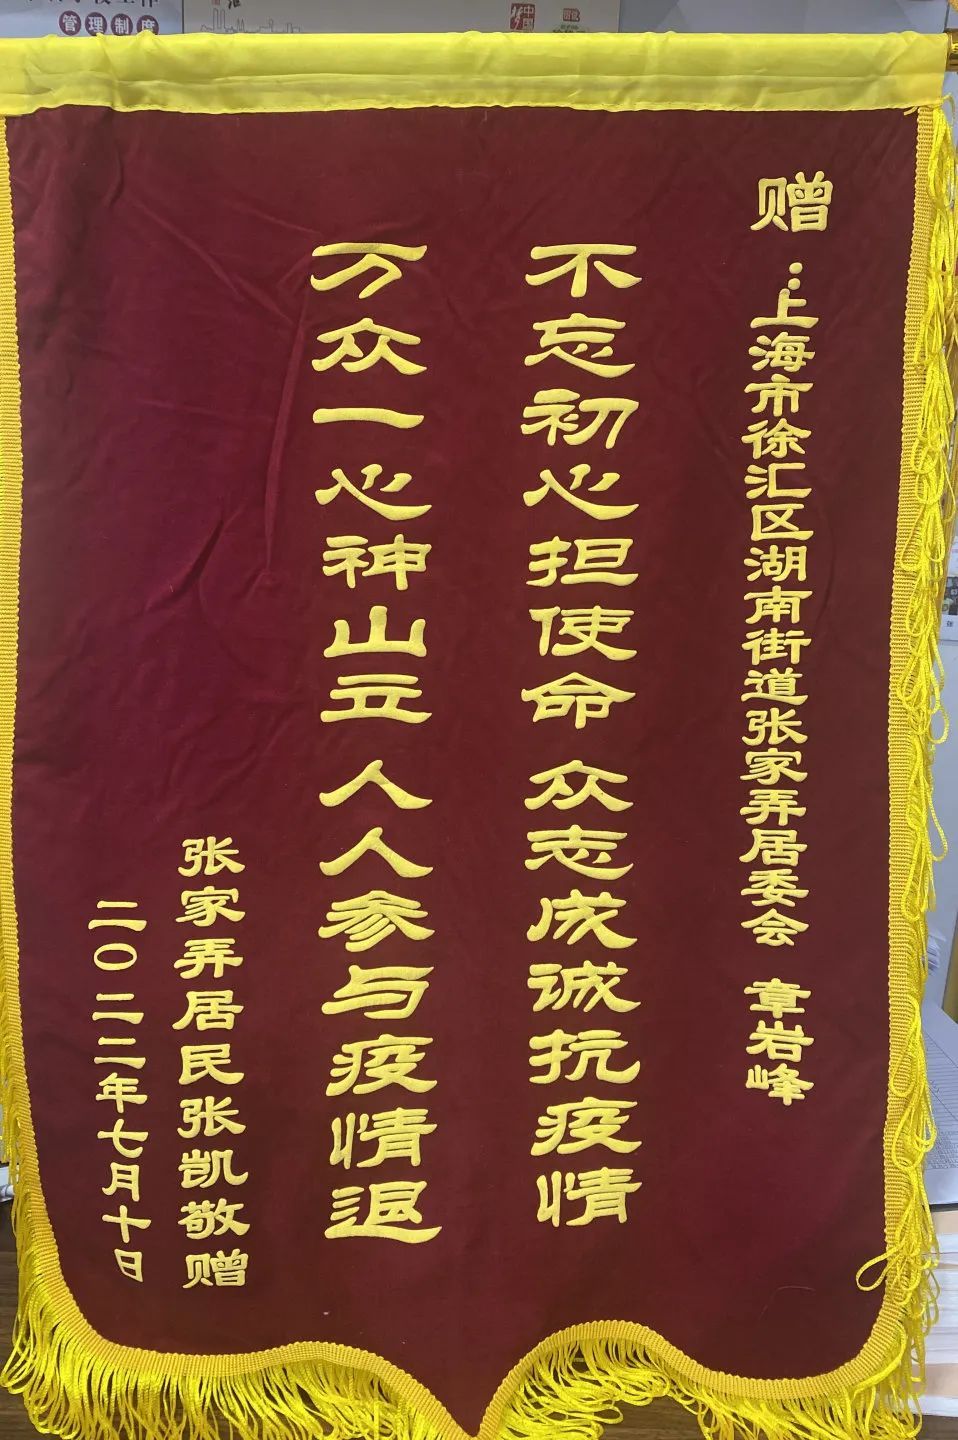 管理制度
赠：上海市徐汇区湖南街道张家弄居委会 章岩峰
不忘初心担使命 众志成诚抗疫情
万众一心神山立 人人参与疫情退
张家弄居民张凯敬赠
二〇二二年七月十日